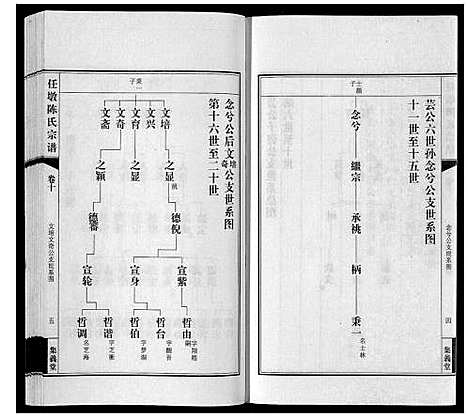 芸公六世孙念兮公支世系图
十一世至十五世
念兮
继宗
承桃
柄
秉一 名士林
念兮公支世系图
四
念兮公后文培文奇公支世系图
第十六世至二十世
秉一子
文培
文兴
文育
文奇
文斋
之显
之显
之颖
德倪
德蕃
宣紫
宣身
宣轮
哲由
哲台
哲伯
哲谐
哲调 名芝海
任墩陈氏宗谱
卷十
文培文奇公支世系图
五
集义堂